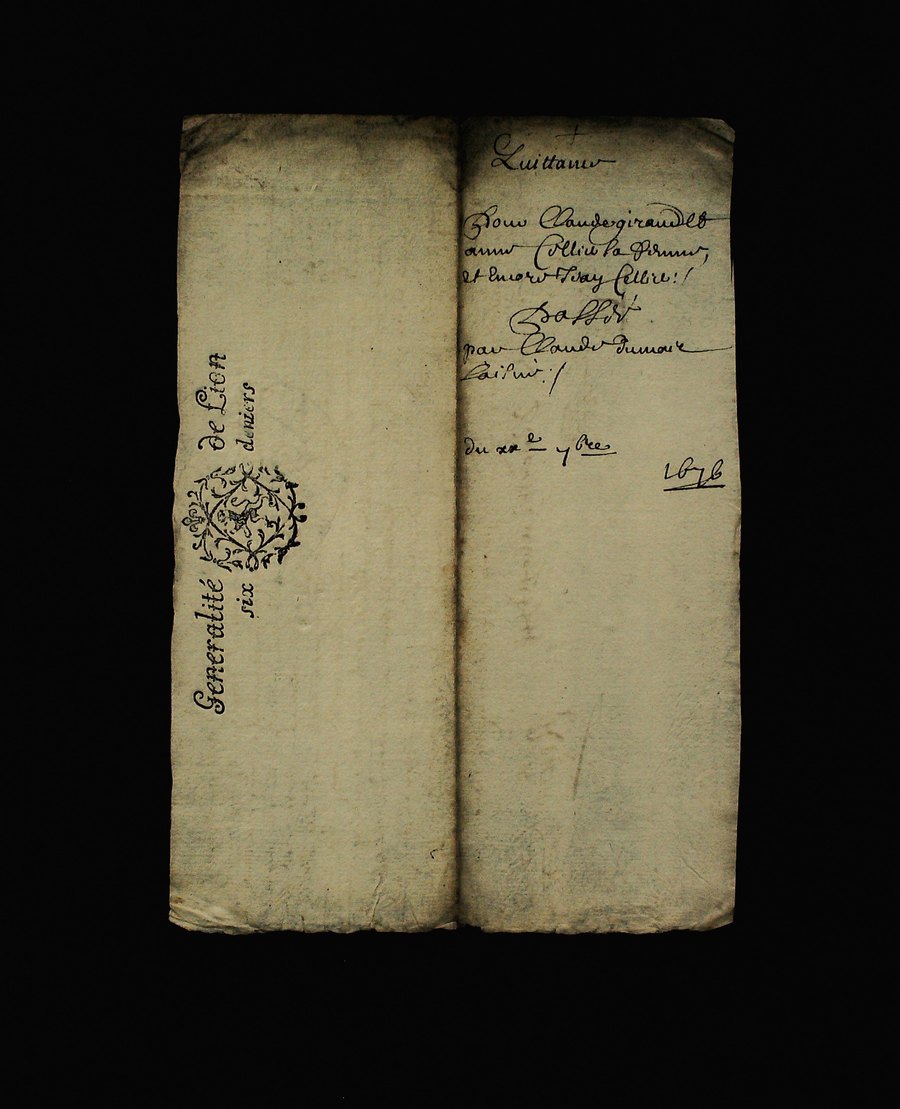 Generalité de Lion
six deniers
Quittance
Pour Claude giraud et
anne Cellier sa femme,
et encore Isay Cellier :/
Passée
par Claude Dumair
laisné :/
du xx e 7 bre
1676